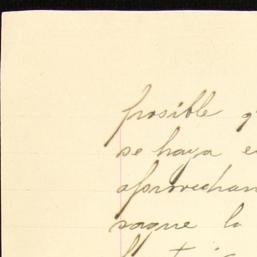 posible q
se haya e
aprovechan
saque la